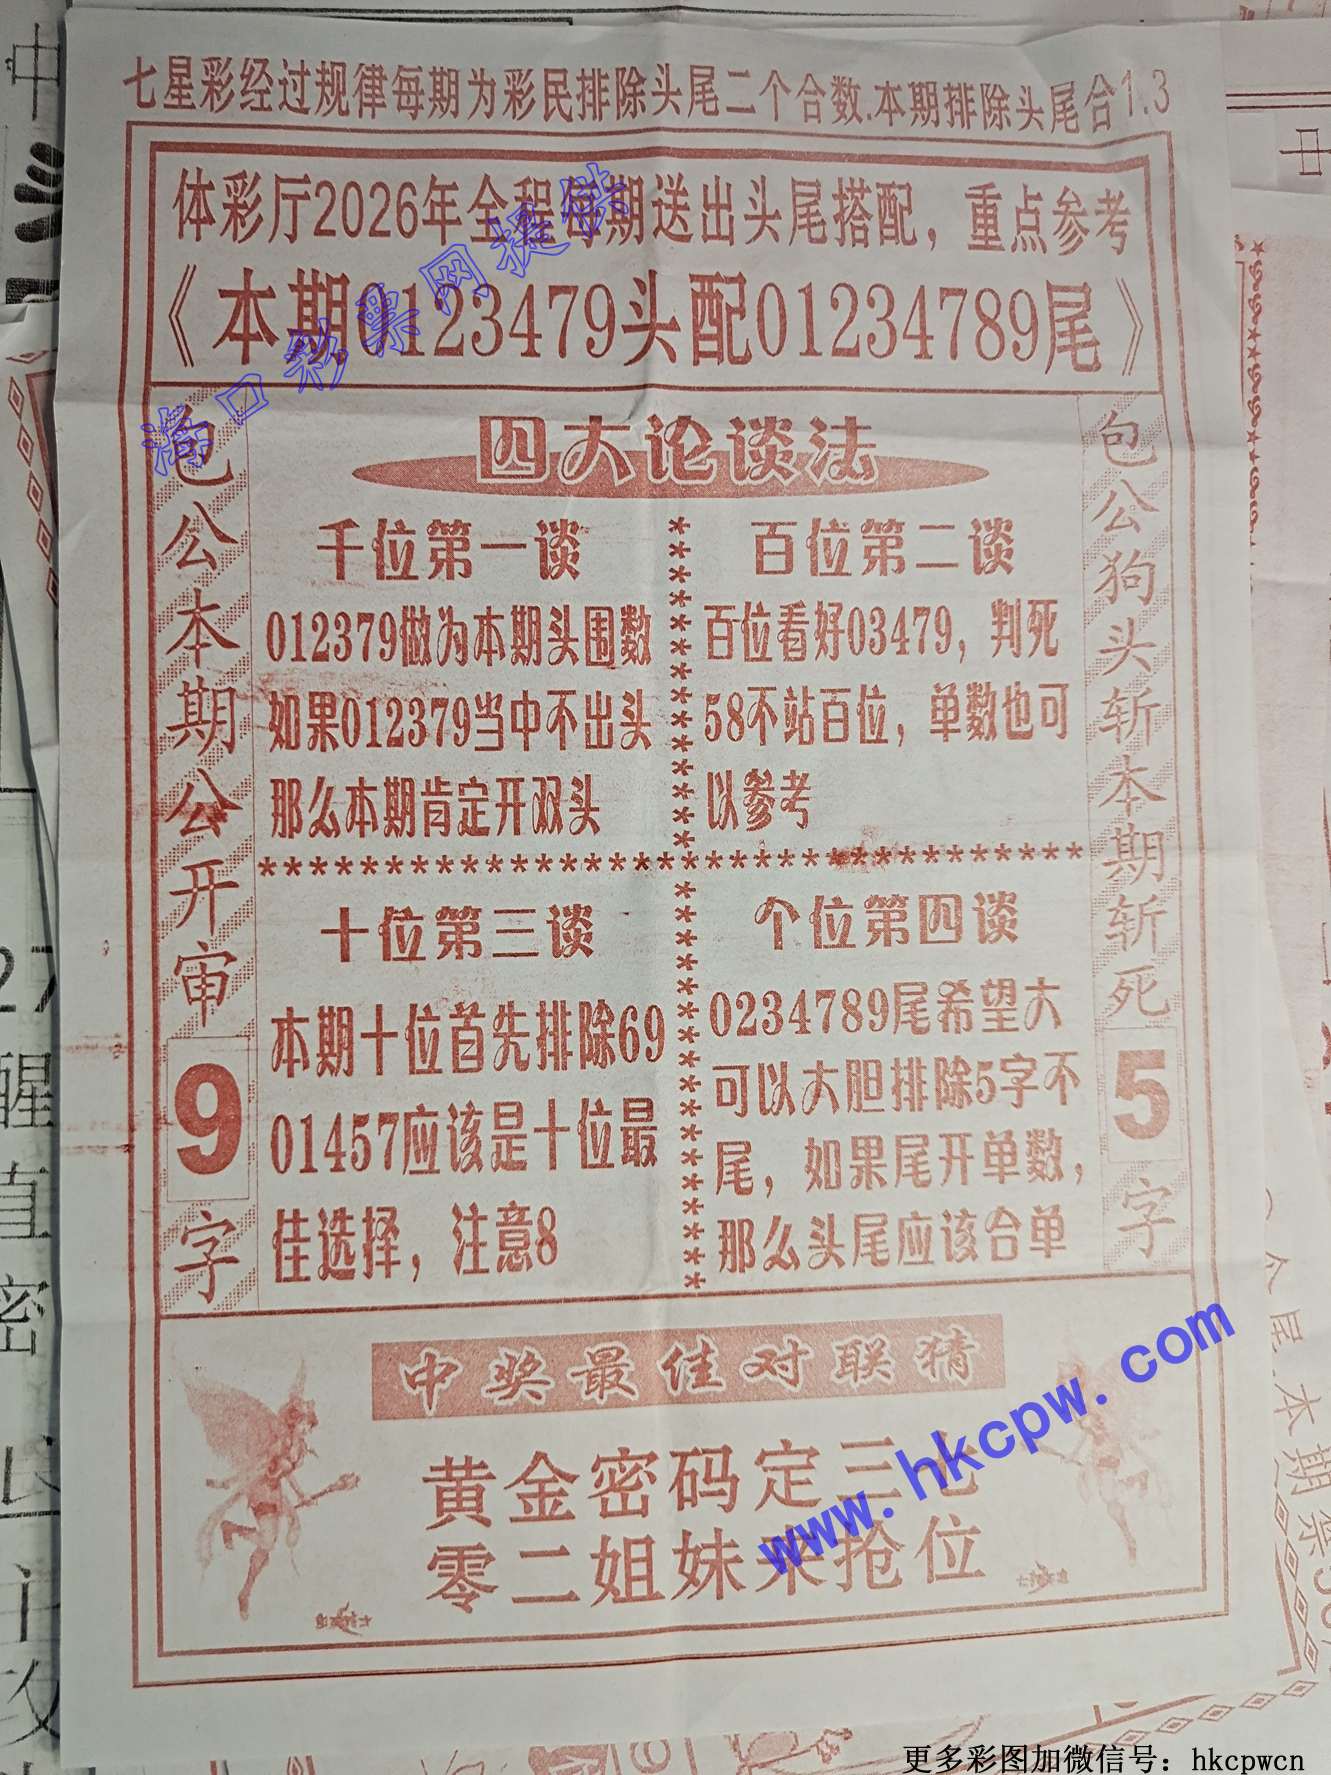 七星彩经过规律每期为彩民排除头尾二个合数.本期排除头尾合1.3
体彩厅2026年全程每期送出头尾搭配，重点参考
《本期0123479头配01234789尾》
海口彩票网提供
包公本期公开审9字
四大论谈法
千位第一谈
012379做为本期头围数
如果012379当中不出头
那么本期肯定开双头
百位第二谈
百位看好03479，判死
58不站百位，单数也可
以参考
十位第三谈
本期十位首先排除69
01457应该是十位最
佳选择，注意8
个位第四谈
0234789尾希望大
可以大胆排除5字不
尾，如果尾开单数，
那么头尾应该合单
包公狗头斩本期斩死5字
中奖最佳对联猜
黄金密码定三七
零二姐妹来抢位
www.hkcpw.com
更多彩图加微信号：hkcpwcn
中
27
醒
直
密
中
尾本期禁